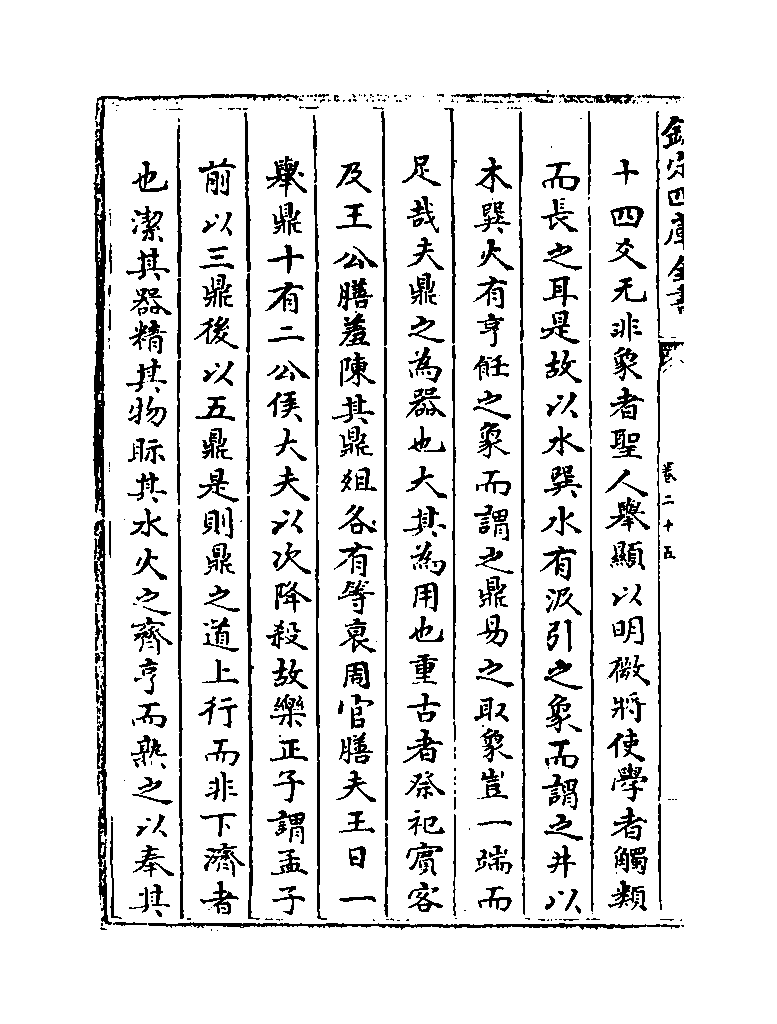 欽定四庫全書
卷二十五
十四爻无非象者聖人舉顯以明微將使學者觸類
而長之耳是故以水巽水有汲引之象而謂之井以
木巽火有亨飪之象而謂之鼎易之取象豈一端而
足哉夫鼎之為器也大其為用也重古者祭祀賓客
及王公膳羞陳其鼎俎各有等衰周官膳夫王日一
舉鼎十有二公侯大夫以次降殺故樂正子謂孟子
前以三鼎後以五鼎是則鼎之道上行而非下濟者
也潔其器精其物眎其水火之齊亨而熟之以奉其